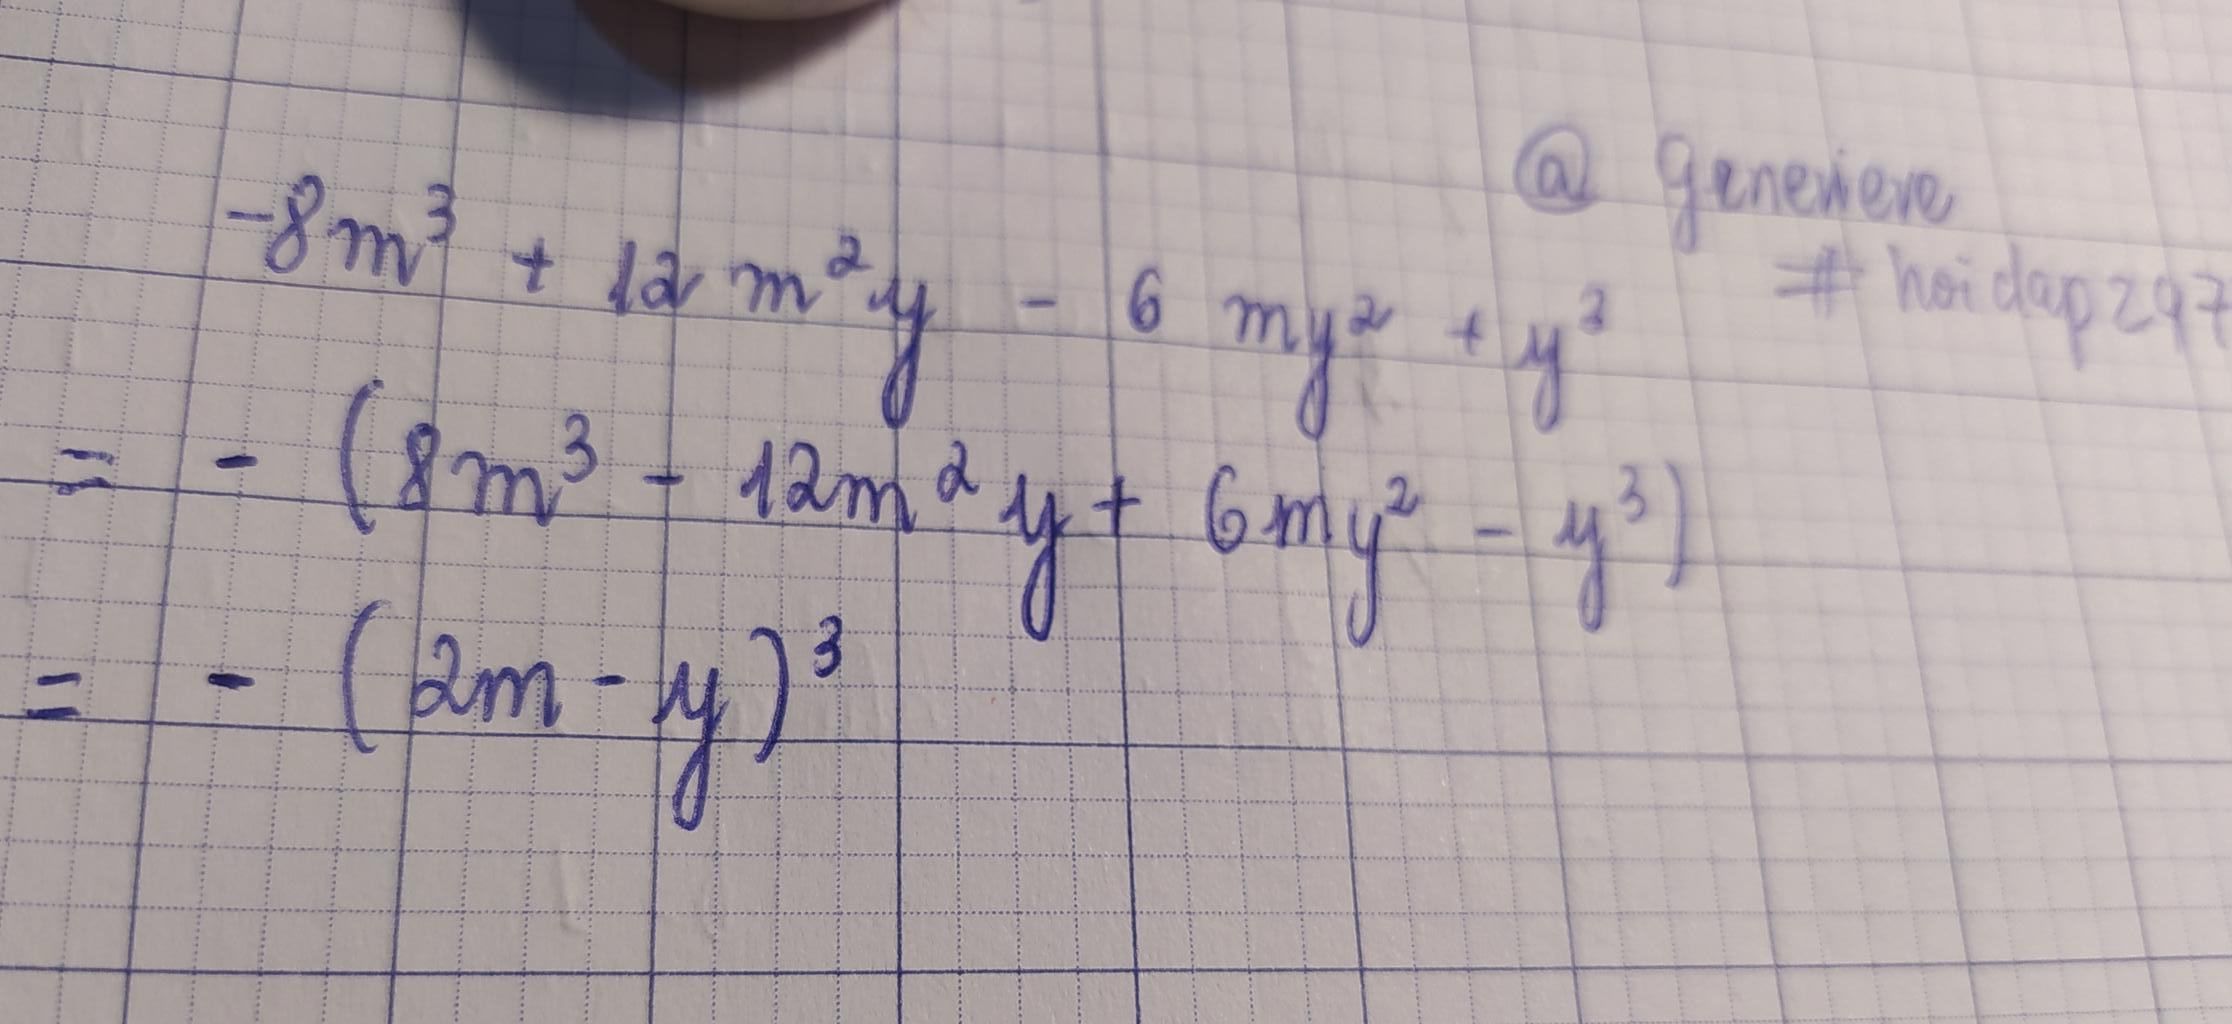 @ Genevieve
# hoidap247
-8m³ + 12 m²y - 6 my² + y³
= - (8m³ - 12m²y + 6my² - y³)
= - (2m - y)³